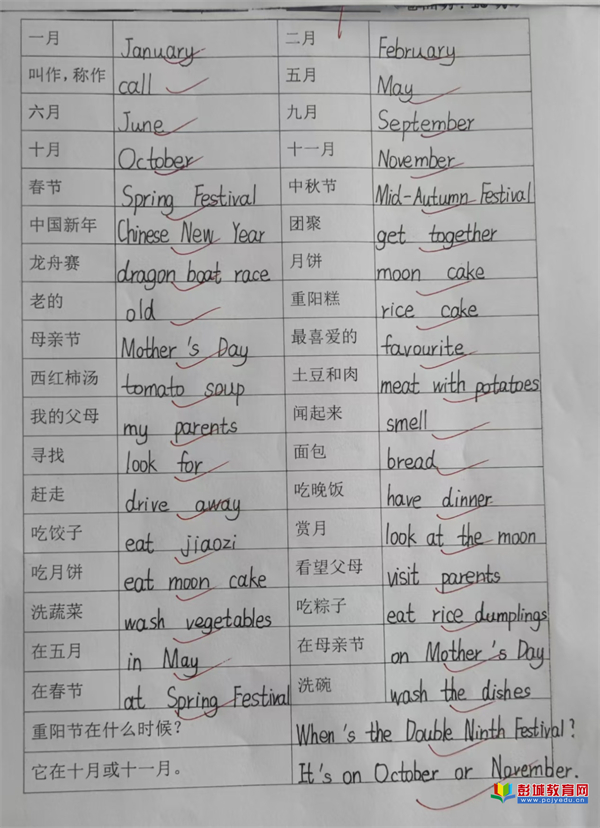 一月 January 二月 February
叫作，称作 call 五月 May
六月 June 九月 September
十月 October 十一月 November
春节 Spring Festival 中秋节 Mid-Autumn Festival
中国新年 Chinese New Year 团聚 get together
龙舟赛 dragon boat race 月饼 moon cake
老的 old 重阳糕 rice cake
母亲节 Mother's Day 最喜爱的 favourite
西红柿汤 tomato soup 土豆和肉 meat with potatoes
我的父母 my parents 闻起来 smell
寻找 look for 面包 bread
赶走 drive away 吃晚饭 have dinner
吃饺子 eat jiaozi 赏月 look at the moon
吃月饼 eat moon cake 看望父母 visit parents
洗蔬菜 wash vegetables 吃粽子 eat rice dumplings
在五月 in May 在母亲节 on Mother's Day
在春节 at Spring Festival 洗碗 wash the dishes
重阳节在什么时候？ When's the Double Ninth Festival?
它在十月或十一月。 It's on October or November.
彭城教育网
www.pcjyedu.com